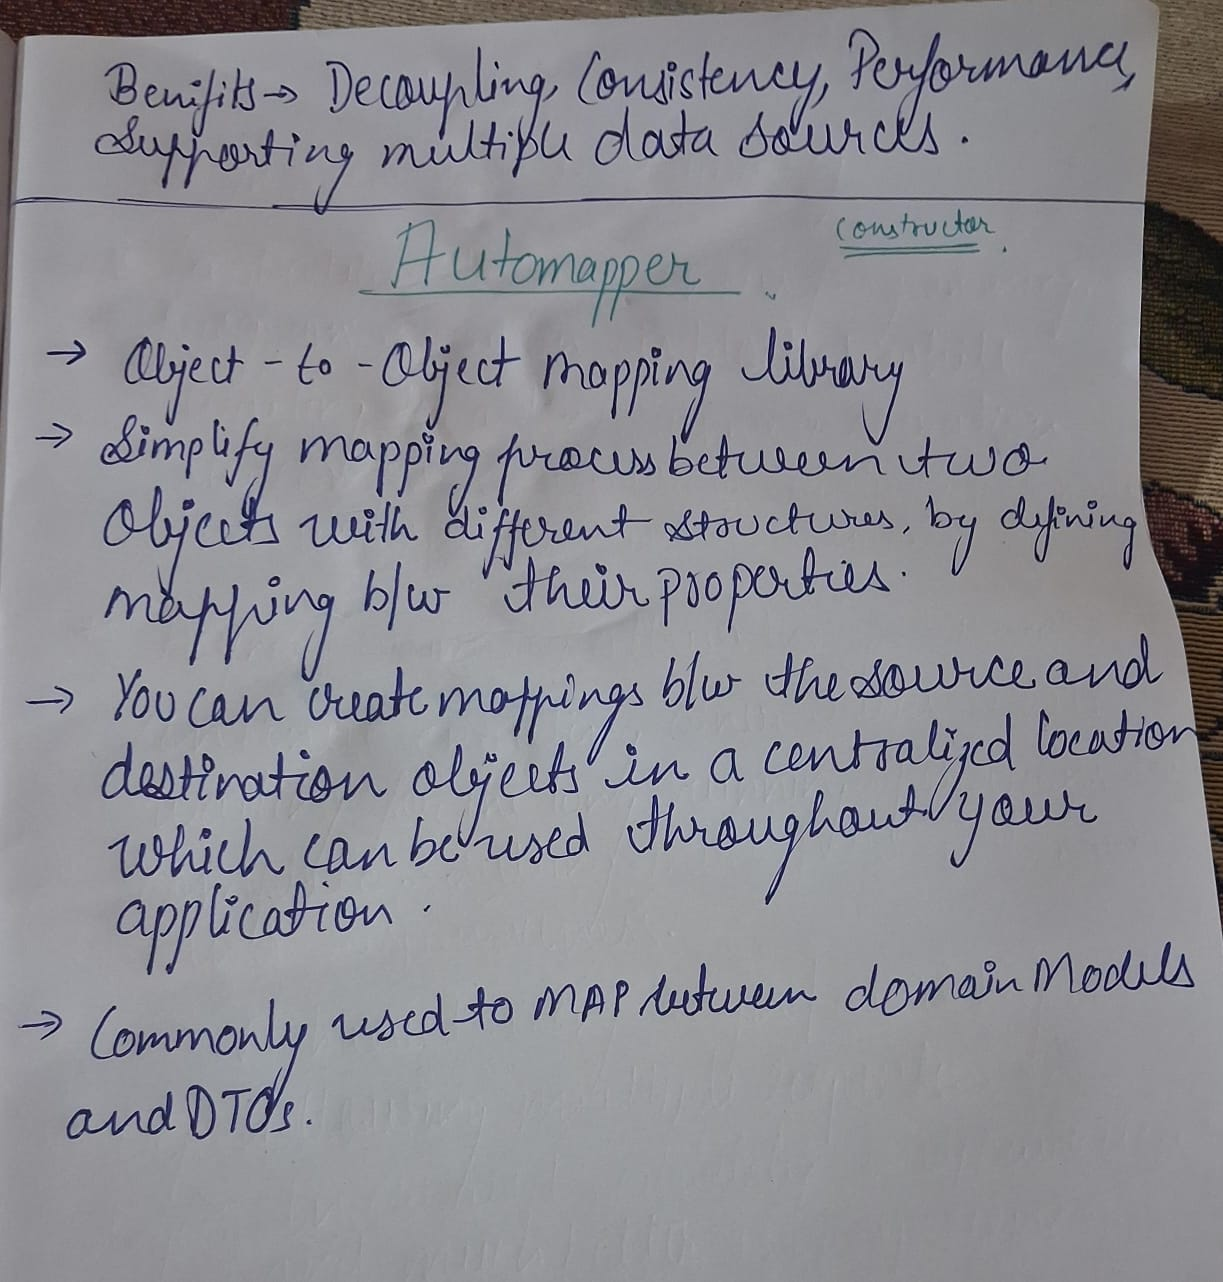 Benifits → Decoupling, Consistency, Performance,
Supporting multiple data sources.
constructor.
Automapper.
→ Object - to - Object mapping library
→ Simplify mapping process between two
Objects with different structures, by defining
mapping b/w their properties.
→ You can create mappings b/w the source and
destination objects in a centralized location
which can be used throughout your
application.
→ Commonly used to MAP between domain Models
and DTOs.